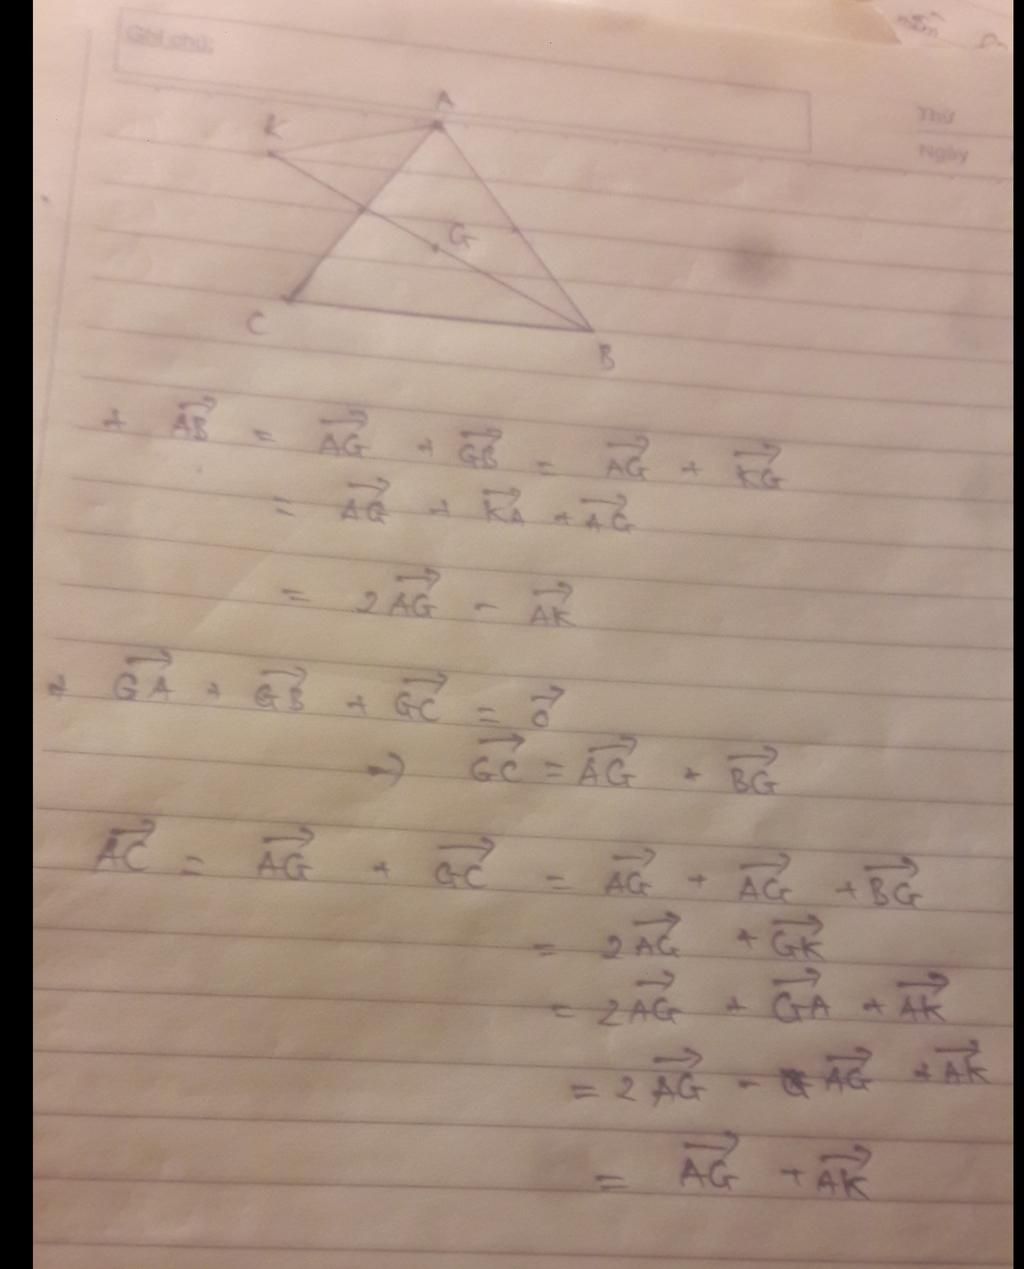 Ghi chú:
Thứ
Ngày
A
K
G
C
B
+ $\overrightarrow{AB} = \overrightarrow{AG} + \overrightarrow{GB} = \overrightarrow{AG} + \overrightarrow{KG}$
$= \overrightarrow{AG} + \overrightarrow{KA} + \overrightarrow{AG}$
$= 2\overrightarrow{AG} - \overrightarrow{AK}$
+ $\overrightarrow{GA} + \overrightarrow{GB} + \overrightarrow{GC} = \overrightarrow{0}$
$\rightarrow \overrightarrow{GC} = \overrightarrow{AG} + \overrightarrow{BG}$
$\overrightarrow{AC} = \overrightarrow{AG} + \overrightarrow{GC} = \overrightarrow{AG} + \overrightarrow{AG} + \overrightarrow{BG}$
$= 2\overrightarrow{AG} + \overrightarrow{GK}$
$= 2\overrightarrow{AG} + \overrightarrow{GA} + \overrightarrow{AK}$
$= 2\overrightarrow{AG} - \overrightarrow{AG} + \overrightarrow{AK}$
$= \overrightarrow{AG} + \overrightarrow{AK}$